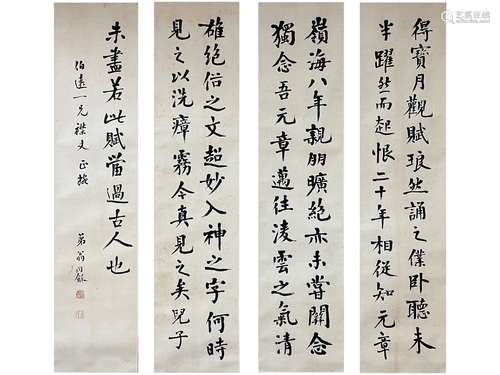 得寶月觀賦琅然誦之僕臥聽未
半躍然而起恨二十年相從知元章
嶺海八年親朋曠絕亦未嘗關念
獨念吾元章邁往淩雲之氣清
雄絕俗之文超妙入神之字何時
見之以洗瘴霧今真見之矣兒子
未盡若此賦當過古人也
伯遠一兄襟丈正
弟翁同龢
艺典中国